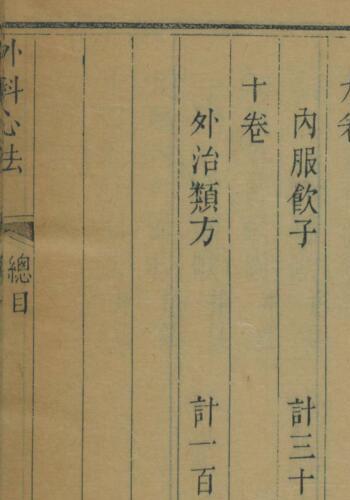 內服飮子 計三十
十卷
外治類方 計一百
外科心法 總目